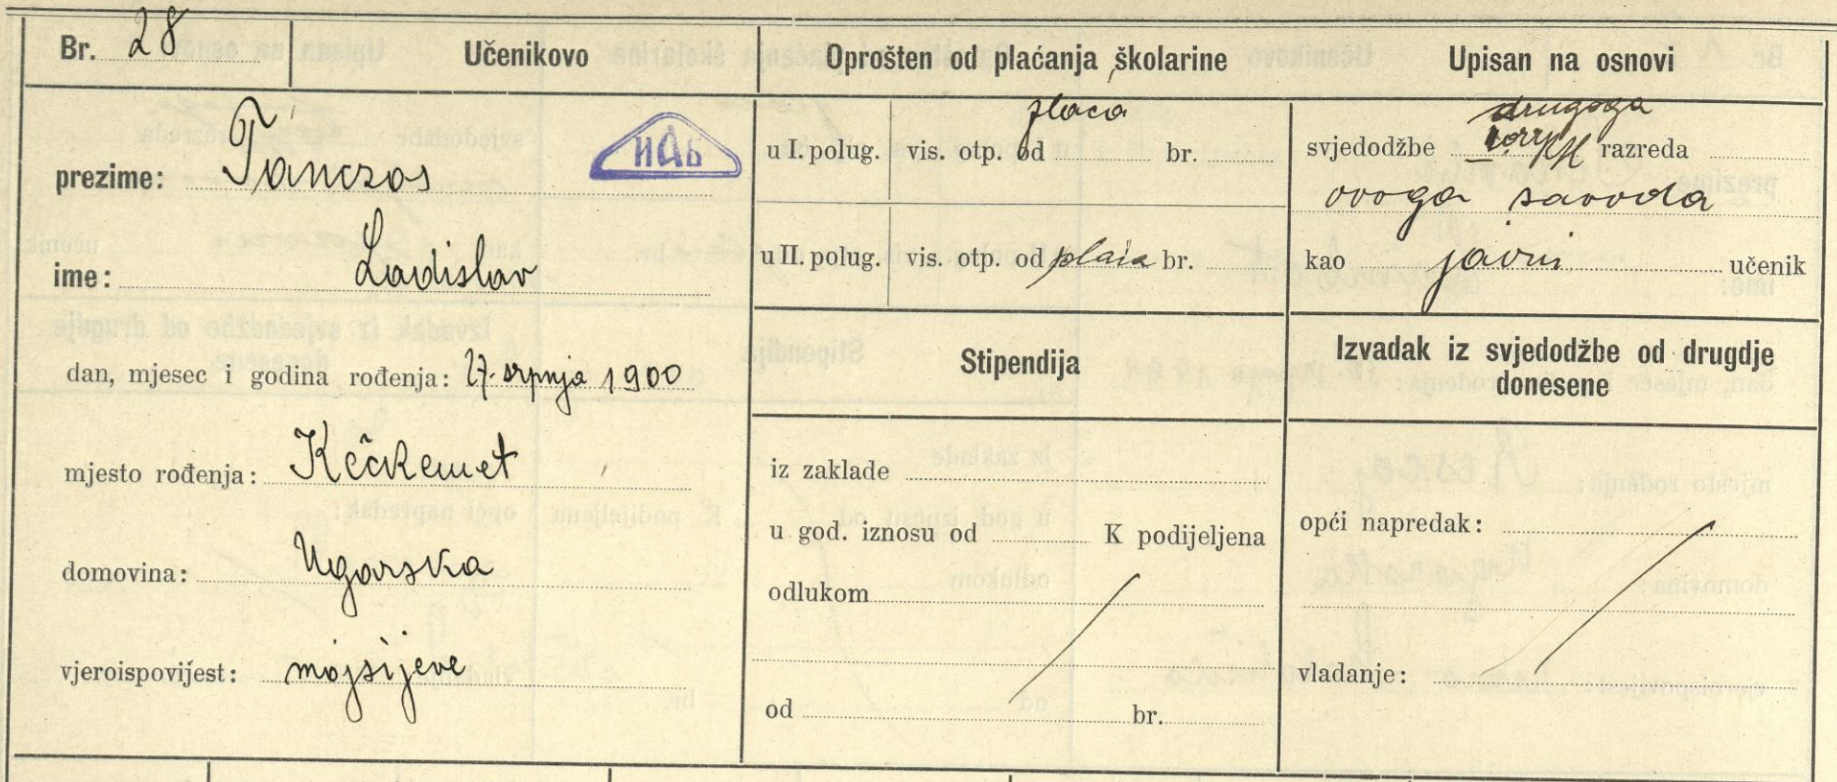 Br. 28
Učenikovo
prezime: Tánczos
HAb
ime: Ladislav
dan, mjesec i godina rođenja: 27. srpnja 1900
mjesto rođenja: Kečkemet
domovina: Ugarska
vjeroispovijest: mojsijeve
Oprošten od plaćanja školarine
plaća
u I. polug. vis. otp. od br.
u II. polug. vis. otp. od plaća br.
Stipendija
iz zaklade
u god. iznosu od K podijeljena
odlukom
od br.
Upisan na osnovi
drugoga
svjedodžbe razreda
ovoga zavoda
kao javni učenik
Izvadak iz svjedodžbe od drugdje
donesene
opći napredak:
vladanje: